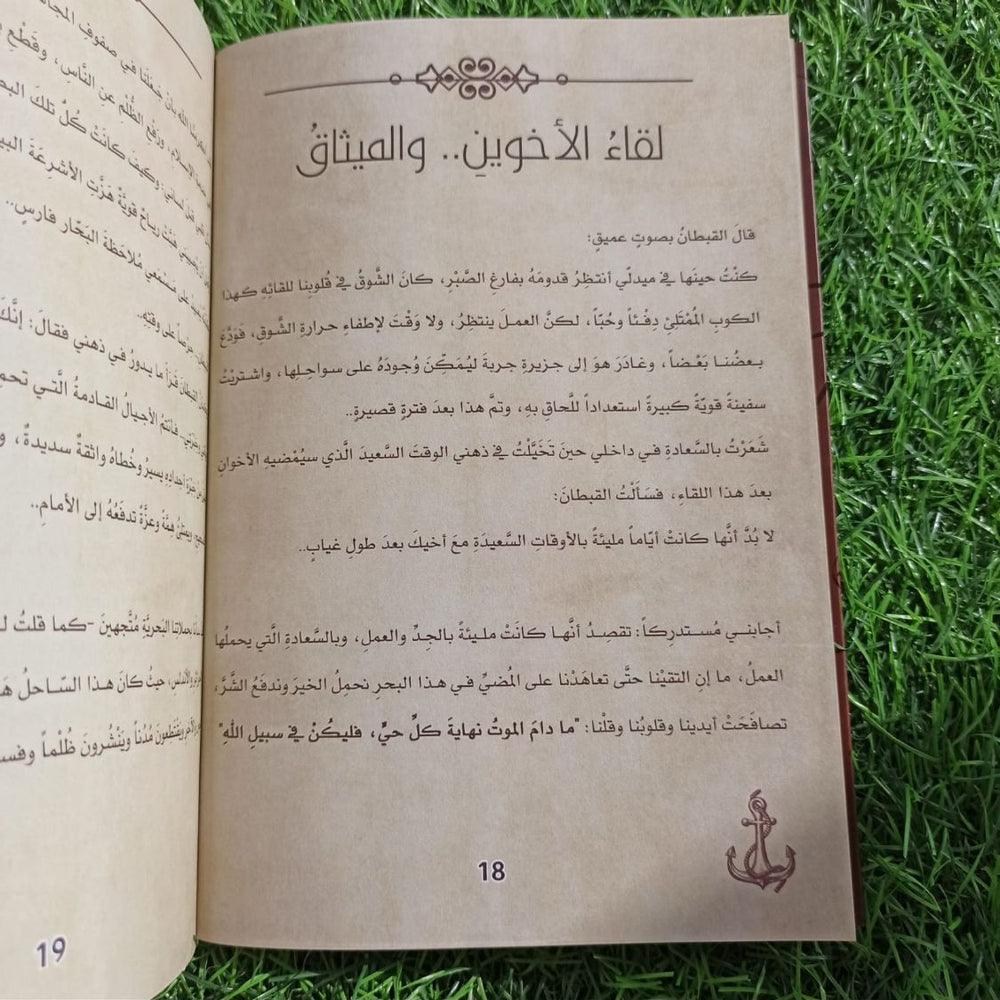 لقاءُ الأخوينِ.. والميثاقُ
قالَ القبطانُ بصوتٍ عميقٍ:
كنْتُ حينَها في ميدلّي أنتظِرُ قدومَهُ بفارغِ الصَّبْرِ، كانَ الشَّوقُ في قُلوبِنا للقائِهِ كهذا
الكوبِ المُمْتَلِئِ دِفْئاً وحُبّاً، لكنَّ العملَ ينتظِرُ، ولا وَقْتَ لإطفاءِ حرارةِ الشَّوقِ، فَوَدَّعَ
بعضُنا بَعْضاً، وغادَرَ هوَ إلى جزيرةِ جربةَ ليُمَكِّنَ وُجودَهُ على سواحلِها، واشتريْتُ
سفينةً قويّةً كبيرةً استعداداً للَّحاقِ بهِ، وتمَّ هذا بعدَ فترةٍ قصيرةٍ..
شَعَرْتُ بالسَّعادةِ في داخلي حينَ تَخَيَّلْتُ في ذهني الوقتَ السَّعيدَ الَّذي سيُمْضيهِ الأخوانِ
بعدَ هذا اللقاءِ، فسَأَلْتُ القبطانَ:
لا بُدَّ أنَّها كانتْ أيّاماً مليئةً بالأوقاتِ السَّعيدَةِ معَ أخيكَ بعدَ طولِ غيابٍ..
أجابني مُستدرِكاً: تقصِدُ أنَّها كانَتْ مليئةً بالجِدِّ والعملِ، وبالسَّعادةِ الَّتي يحملُها
العملُ، ما إنِ التقيْنا حتَّى تعاهَدْنا على المُضيِّ في هذا البحرِ نحمِلُ الخيرَ وندفَعُ الشَّرَّ،
تصافَحَتْ أيدينا وقلوبُنا وقلْنا: "ما دامَ الموتُ نهايةَ كلِّ حيٍّ، فليكُنْ في سبيلِ اللهِ"
18
في صفوفِ
الإسلامِ، ورَفْعِ الظُّلْمِ عنِ النَّاسِ، وقَطْعِ
وكيفَ كانَتْ كُلُّ تلكَ
هَبَّتْ رياحٌ قويَّةٌ هَزَّتِ الأشرِعَةَ
مُلاحَظَةَ البَحّارِ فارسٍ..
على وقتِهِ.
ما يدورُ في ذهني فقالَ: إنَّكَ
الأجيالُ القادمةُ الَّتي
يسيرُ وخُطاهُ واثقةٌ سديدةٌ،
همَّةً وعزَّةً تدفَعُهُ إلى الأمامِ..
البَحريَّةِ مُتَّجهينَ -كما قلتُ
حيثُ كانَ هذا السّاحلُ
مُدُناً ويَنْشُرونَ ظُلْماً
19